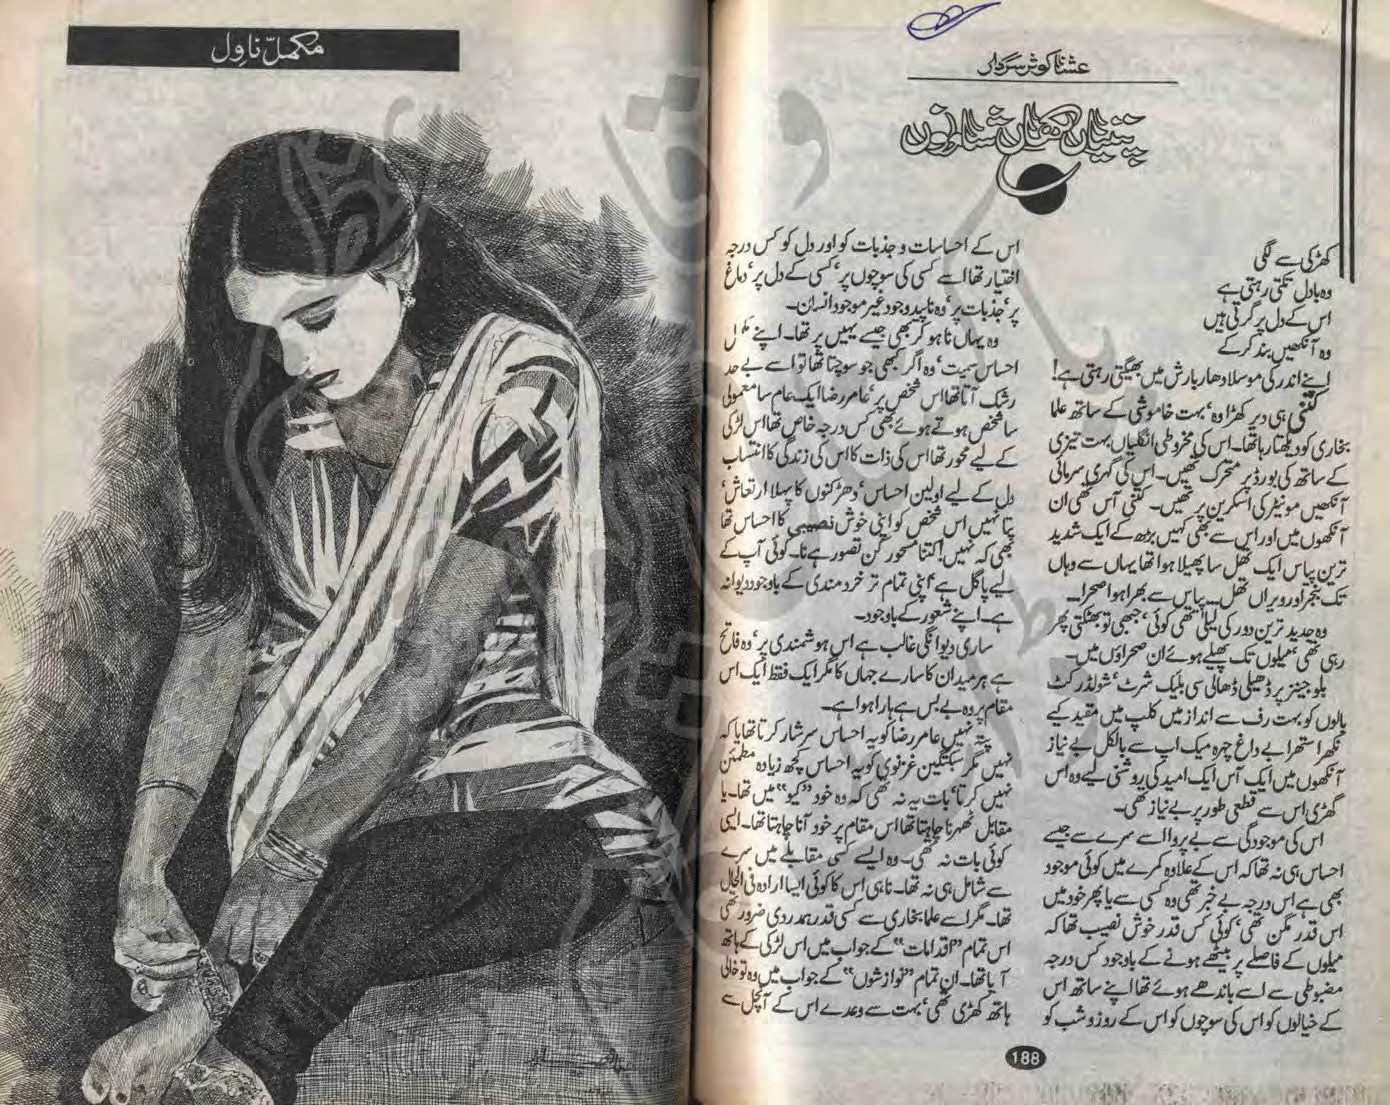 مکمل ناول
عشنا کوثر سردار
کھڑکی سے لگی
وہ بادل تکتی رہتی ہے
اس کے دل پر گرتی ہیں
وہ آنکھیں بند کر کے
اپنے اندر کی موسلا دھار بارش میں بھیگتی رہتی ہے!
کتنی ہی دیر کھڑا وہ، بہت خاموشی کے ساتھ علما
بخاری کو دیکھتا رہا تھا۔ اس کی مخروطی انگلیاں بہت تیزی
کے ساتھ کی بورڈ پر متحرک تھیں۔ اس کی گہری سرمائی
آنکھیں مونیٹر کی اسکرین پر تھیں۔ کتنی آس تھی ان
آنکھوں میں اور اس سے بھی کہیں بڑھ کے ایک شدید
ترین پیاس ایک تھل سا پھیلا ہوا تھا یہاں سے وہاں
تک بنجر اور ویراں تھل۔ پیاس سے بھرا ہوا صحرا۔
وہ جدید ترین دور کی لیلیٰ تھی کوئی، جبھی تو بھٹکتی پھر
رہی تھی میلوں تک پھیلے ہوئے ان صحراؤں میں۔
بلو جینز پر ڈھیلی ڈھالی سی بلیک شرٹ، شولڈر کٹ
بالوں کو بہت رف سے انداز میں کلپ میں مقید کیے
نکھرا ستھرا بے داغ چہرہ میک اپ سے بالکل بے نیاز
آنکھوں میں ایک آس ایک امید کی روشنی لیے وہ اس
گھڑی اس سے قطعی طور پر بے نیاز تھی۔
اس کی موجودگی سے بے پروا اسے سرے سے جیسے
احساس ہی نہ تھا کہ اس کے علاوہ کمرے میں کوئی موجود
بھی ہے اس درجہ بے خبر تھی وہ کسی سے یا پھر خود میں
اس قدر مگن تھی، کوئی کس قدر خوش نصیب تھا کہ
میلوں کے فاصلے پر بیٹھے ہونے کے باوجود کس درجہ
مضبوطی سے اسے باندھے ہوئے تھا اپنے ساتھ اس
کے خیالوں کو اس کی سوچوں کو اس کے روز و شب کو
اس کے احساسات و جذبات کو اور دل کو کس درجہ
اختیار تھا اسے کسی کی سوچوں پر، کسی کے دل پر، دماغ
پر، جذبات پر، وہ ناپید وجود غیر موجود انسان۔
وہ یہاں نا ہو کر بھی جیسے یہیں پر تھا۔ اپنے مکمل
احساس سمیت، وہ اگر کبھی جو سوچتا تھا تو اسے بے حد
رشک آتا تھا اس شخص پر، عامر رضا ایک عام سا معمولی
سا شخص ہوتے ہوئے بھی کس درجہ خاص تھا اس لڑکی
کے لیے محور تھا اس کی ذات کا اس کی زندگی کا انتساب
دل کے لیے اولین احساس، دھڑکنوں کا پہلا ارتعاش،
پتا نہیں اس شخص کو اپنی خوش نصیبی کا احساس تھا
بھی کہ نہیں! کتنا مسحور کن تصور ہے نا۔ کوئی آپ کے
لیے پاگل ہے اپنی تمام تر خرد مندی کے باوجود دیوانہ
ہے۔ اپنے شعور کے باوجود۔
ساری دیوانگی غالب ہے اس ہوشمندی پر، وہ فاتح
ہے ہر میدان کا سارے جہاں کا مگر ایک فقط ایک اس
مقام پر وہ بے بس ہے ہارا ہوا ہے۔
پتہ نہیں عامر رضا کو یہ احساس سرشار کرتا تھا یا کہ
نہیں مگر سبکتگین غزنوی کو یہ احساس کچھ زیادہ مطمئن
نہیں کرتا، بات یہ نہ تھی کہ وہ خود “کیو” میں تھا۔ یا
مقابل ٹھہرنا چاہتا تھا اس مقام پر خود آنا چاہتا تھا۔ ایسی
کوئی بات نہ تھی۔ وہ ایسے کسی مقابلے میں سرے
سے شامل ہی نہ تھا۔ نا ہی اس کا کوئی ایسا ارادہ فی الحال
تھا۔ مگر اسے علما بخاری سے کسی قدر ہمدردی ضرور تھی
اس تمام “اقدامات” کے جواب میں اس لڑکی کے ہاتھ
آیا تھا۔ ان تمام “نوازشوں” کے جواب میں وہ تو خالی
ہاتھ کھڑی تھی، بہت سے وعدے اس کے آنچل سے
188